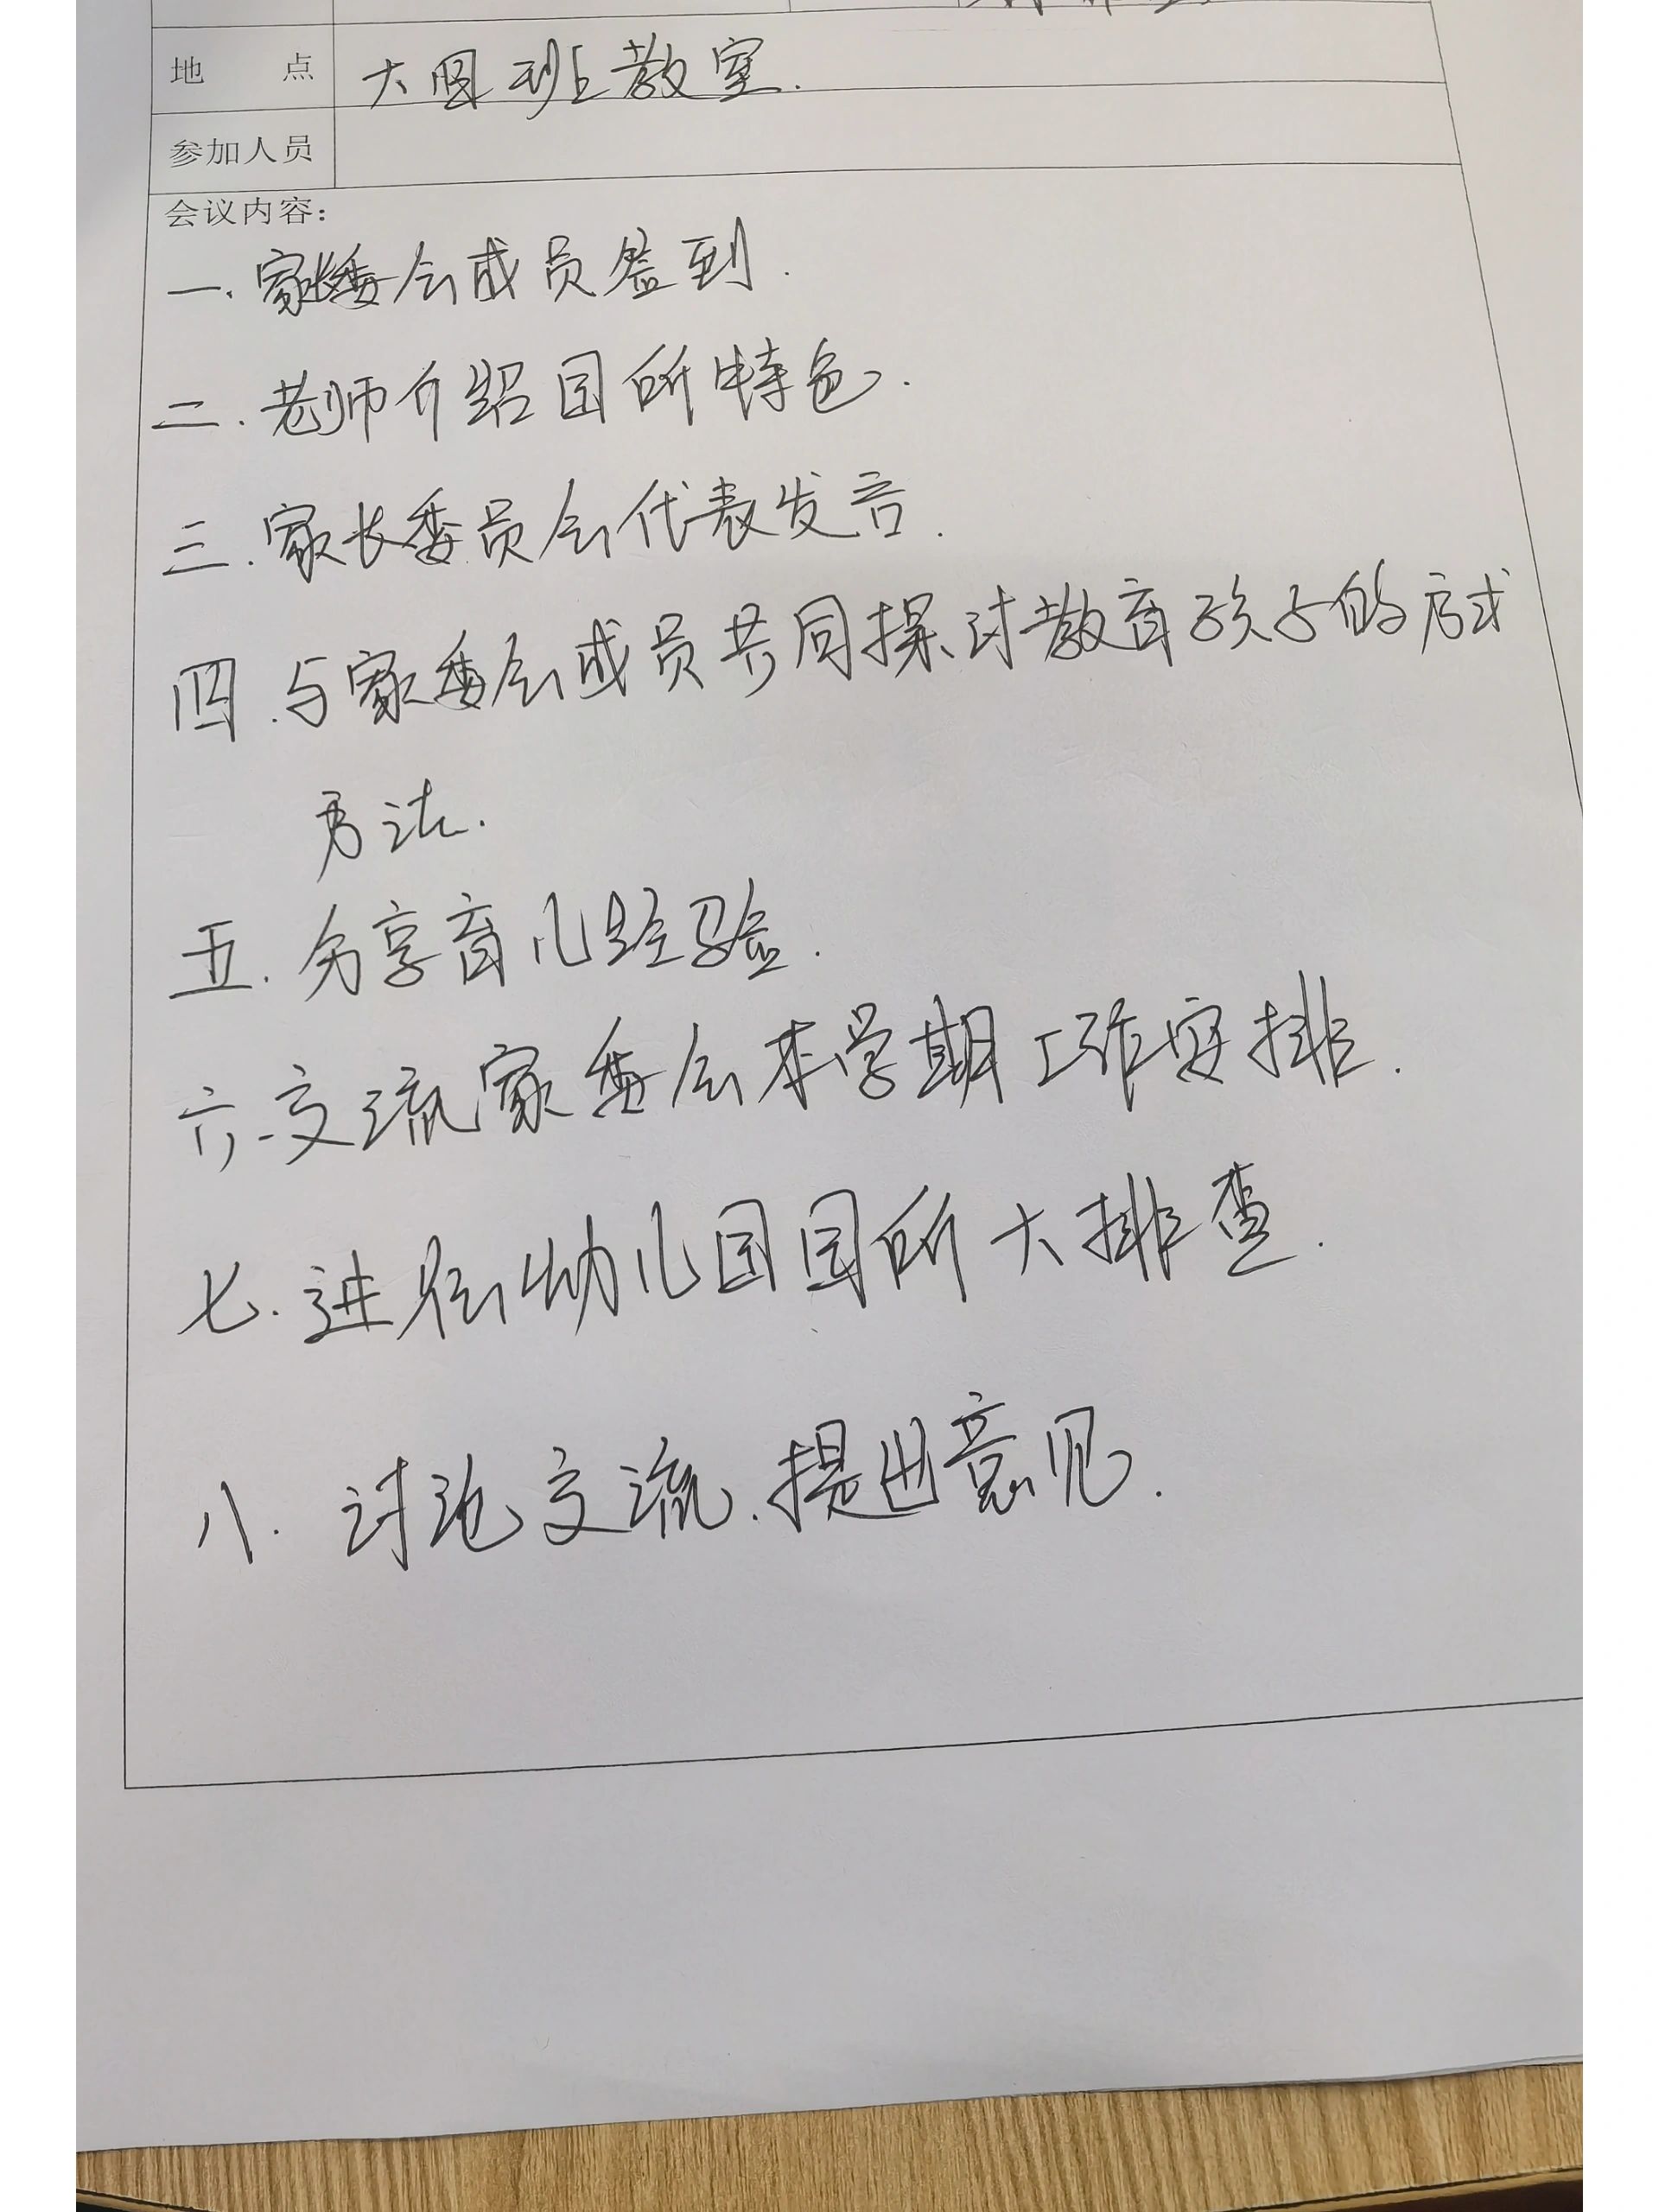 地 点 大国班教室.
参加人员
会议内容:
一、家委会成员签到.
二.老师介绍园所特色.
三.家长委员会代表发言.
四.与家委会成员共同探讨教育孩子的方式
方法.
五.分享育儿经验.
六.交流家委会本学期工作安排.
七.进行幼儿园园所大排查.
八.讨论交流、提出意见.